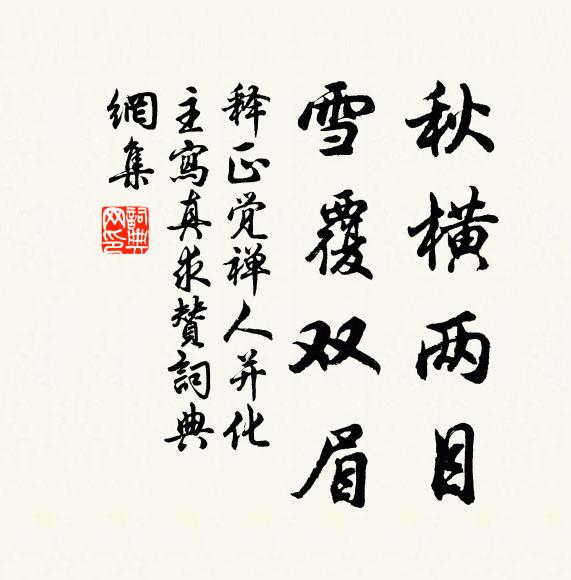 秋横两目
雪覆双眉
释正觉禅人并化
主寫真求赞詞典
網集
詞典
网印